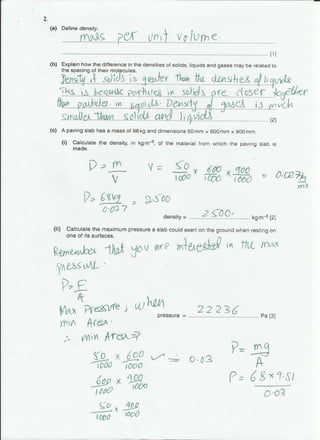 2.
(a) Define density.
mass per unit volume.
[1]
(b) Explain how the difference in the densities of solids, liquids and gases may be related to
the spacing of their molecules.
Density of solids is greater than the densities of liquids
This is because particles in solids are closer together
than particles in liquids. Density of gases is much
smaller than solids and liquids
[2]
(c) A paving slab has a mass of 68 kg and dimensions 50 mm × 600 mm × 900 mm.
(i) Calculate the density, in kg m⁻³, of the material from which the paving slab is
made.
D = m/V V = 50/1000 × 600/1000 × 900/1000 = 0.027 m³
D = 68kg/0.027 = 2500
density = 2500 kg m⁻³ [2]
(ii) Calculate the maximum pressure a slab could exert on the ground when resting on
one of its surfaces.
Remember that you are interested in the max
pressure.
P = F/A
Max Pressure ; when
min Area.
pressure = 22236 Pa [3]
∴ min Area ⇒
50/1000 × 600/1000 ✓ = 0.03
600/1000 × 900/1000
50/1000 × 900/1000
P = mg/A
P = 68 × 9.81/0.03